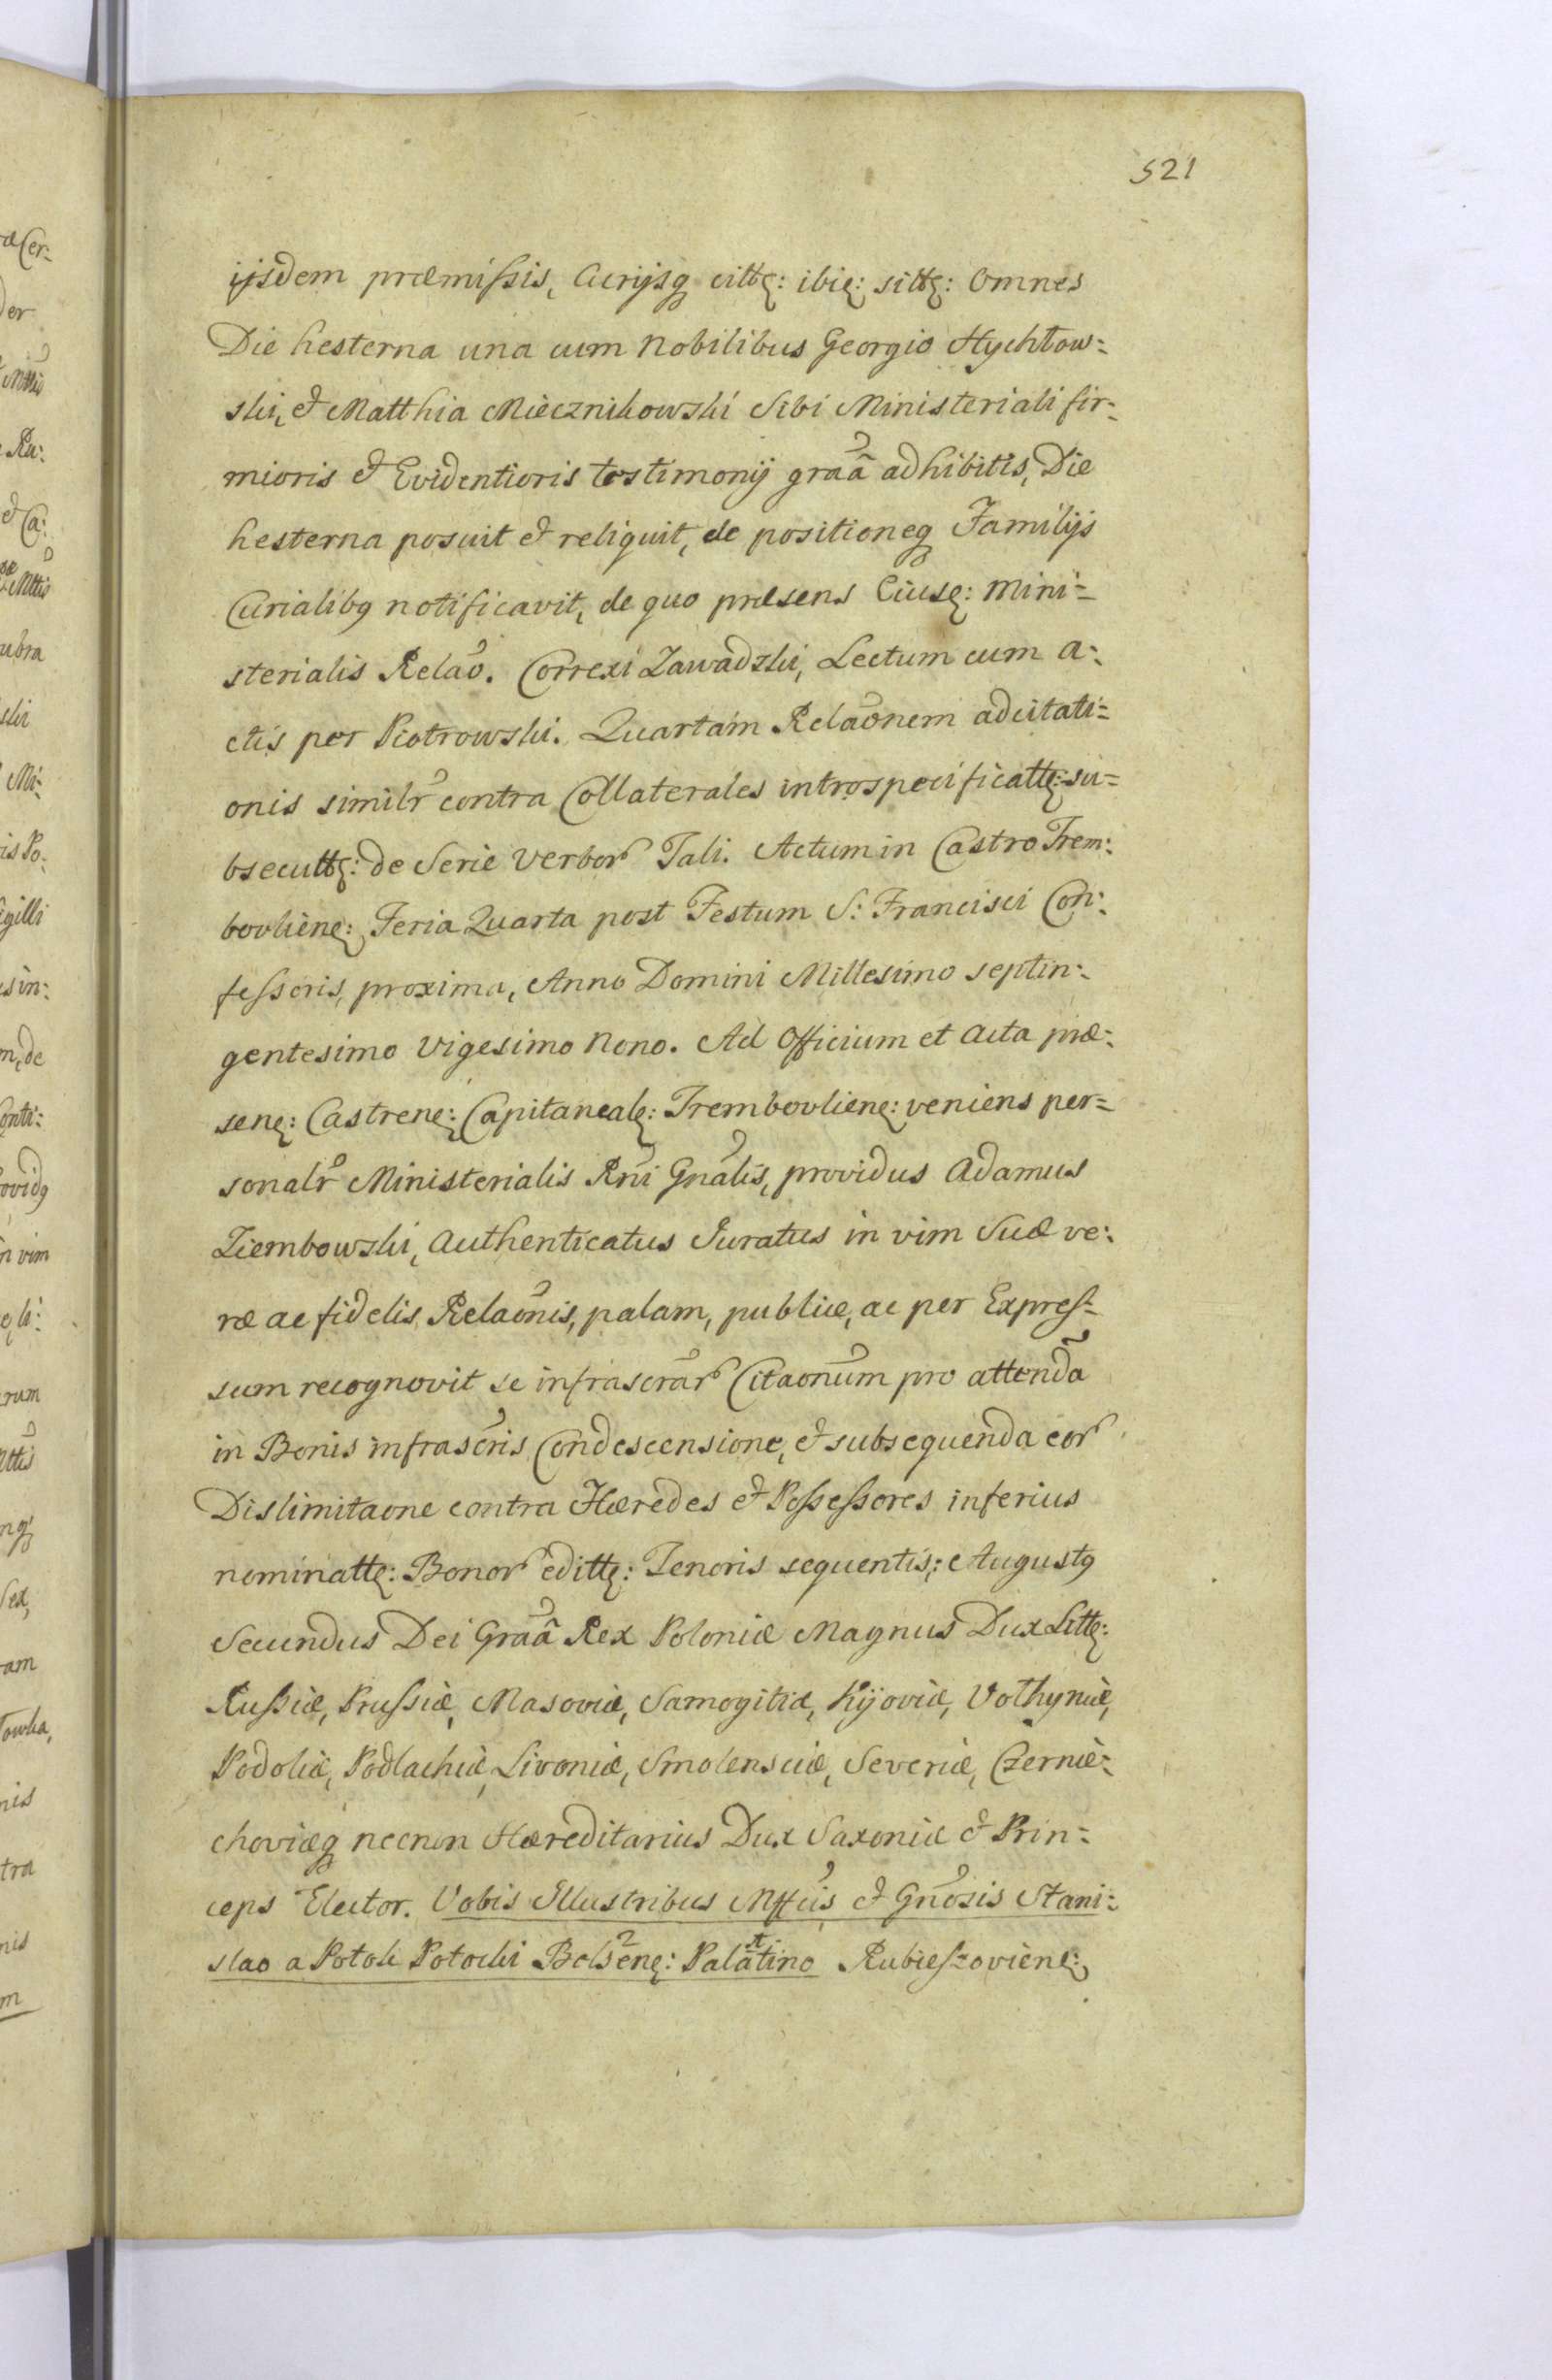 521
ijsdem præmissis, Acrijsq̃ cittẽ: ibiẽ: sittẽ: Omnes
Die hesterna una cum Nobilibus Georgio Hychłow=
ski, & Matthia Miecznikowski Sibi Ministeriali fir=
mioris & Evidentioris testimonij graã adhibitis, Die
hesterna posuit & reliquit, de positioneq̃ Familijs
Curialibq notificavit, de quo præsens Eiusẽ: Mini=
sterialis Relaõ. Correxi Zawadzki, Lectum cum A=
ctis per Piotrowski. Quartam Relaõnem adcitati=
onis similr̃ contra Collaterales introspecificattẽ: su=
bsecuttẽ: de Serie Verbor̃ Tali. Actum in Castro Trem=
bovlienẽ: Feria Quarta post Festum S: Francisci Con=
fessoris, proxima, Anno Domini Millesimo septin=
gentesimo Vigesimo Nono. Ad Officium et Acta præ=
senẽ: Castrenẽ: Capitanealẽ: Trembovlienẽ: veniens per=
sonalr̃ Ministerialis Rñi Gnãlis, providus Adamus
Ziembowski, Authenticatus Juratus in vim Suæ ve=
ræ ac fidelis Relaõnis, palam, publice, ac per Expres=
sum recognovit se infrascrãr̃ Citaonũm pro attendã
in Bonis infrascr̃is Condescensione, & subsequenda eor̃
Dislimitaone contra Hæredes & Possessores inferius
nominattẽ: Bonor̃ edittẽ: Tenoris sequentis: Augustq
Secundus Dei Graã Rex Poloniæ Magnus Dux Littẽ:
Russiæ, Prussiæ, Masoviæ, Samogitiæ, Kijoviæ, Volhyniæ,
Podoliæ, Podlachiæ, Livoniæ, Smolensciæ, Severiæ, Czernie=
choviæq̃ necnon Hæreditarius Dux Saxoniæ & Prin=
ceps Elector. Vobis Illustribus Mffcĩs & Gnõsis Stani=
slao a Potok Potocki Belsenẽ: Palatino Rubieszovienẽ: